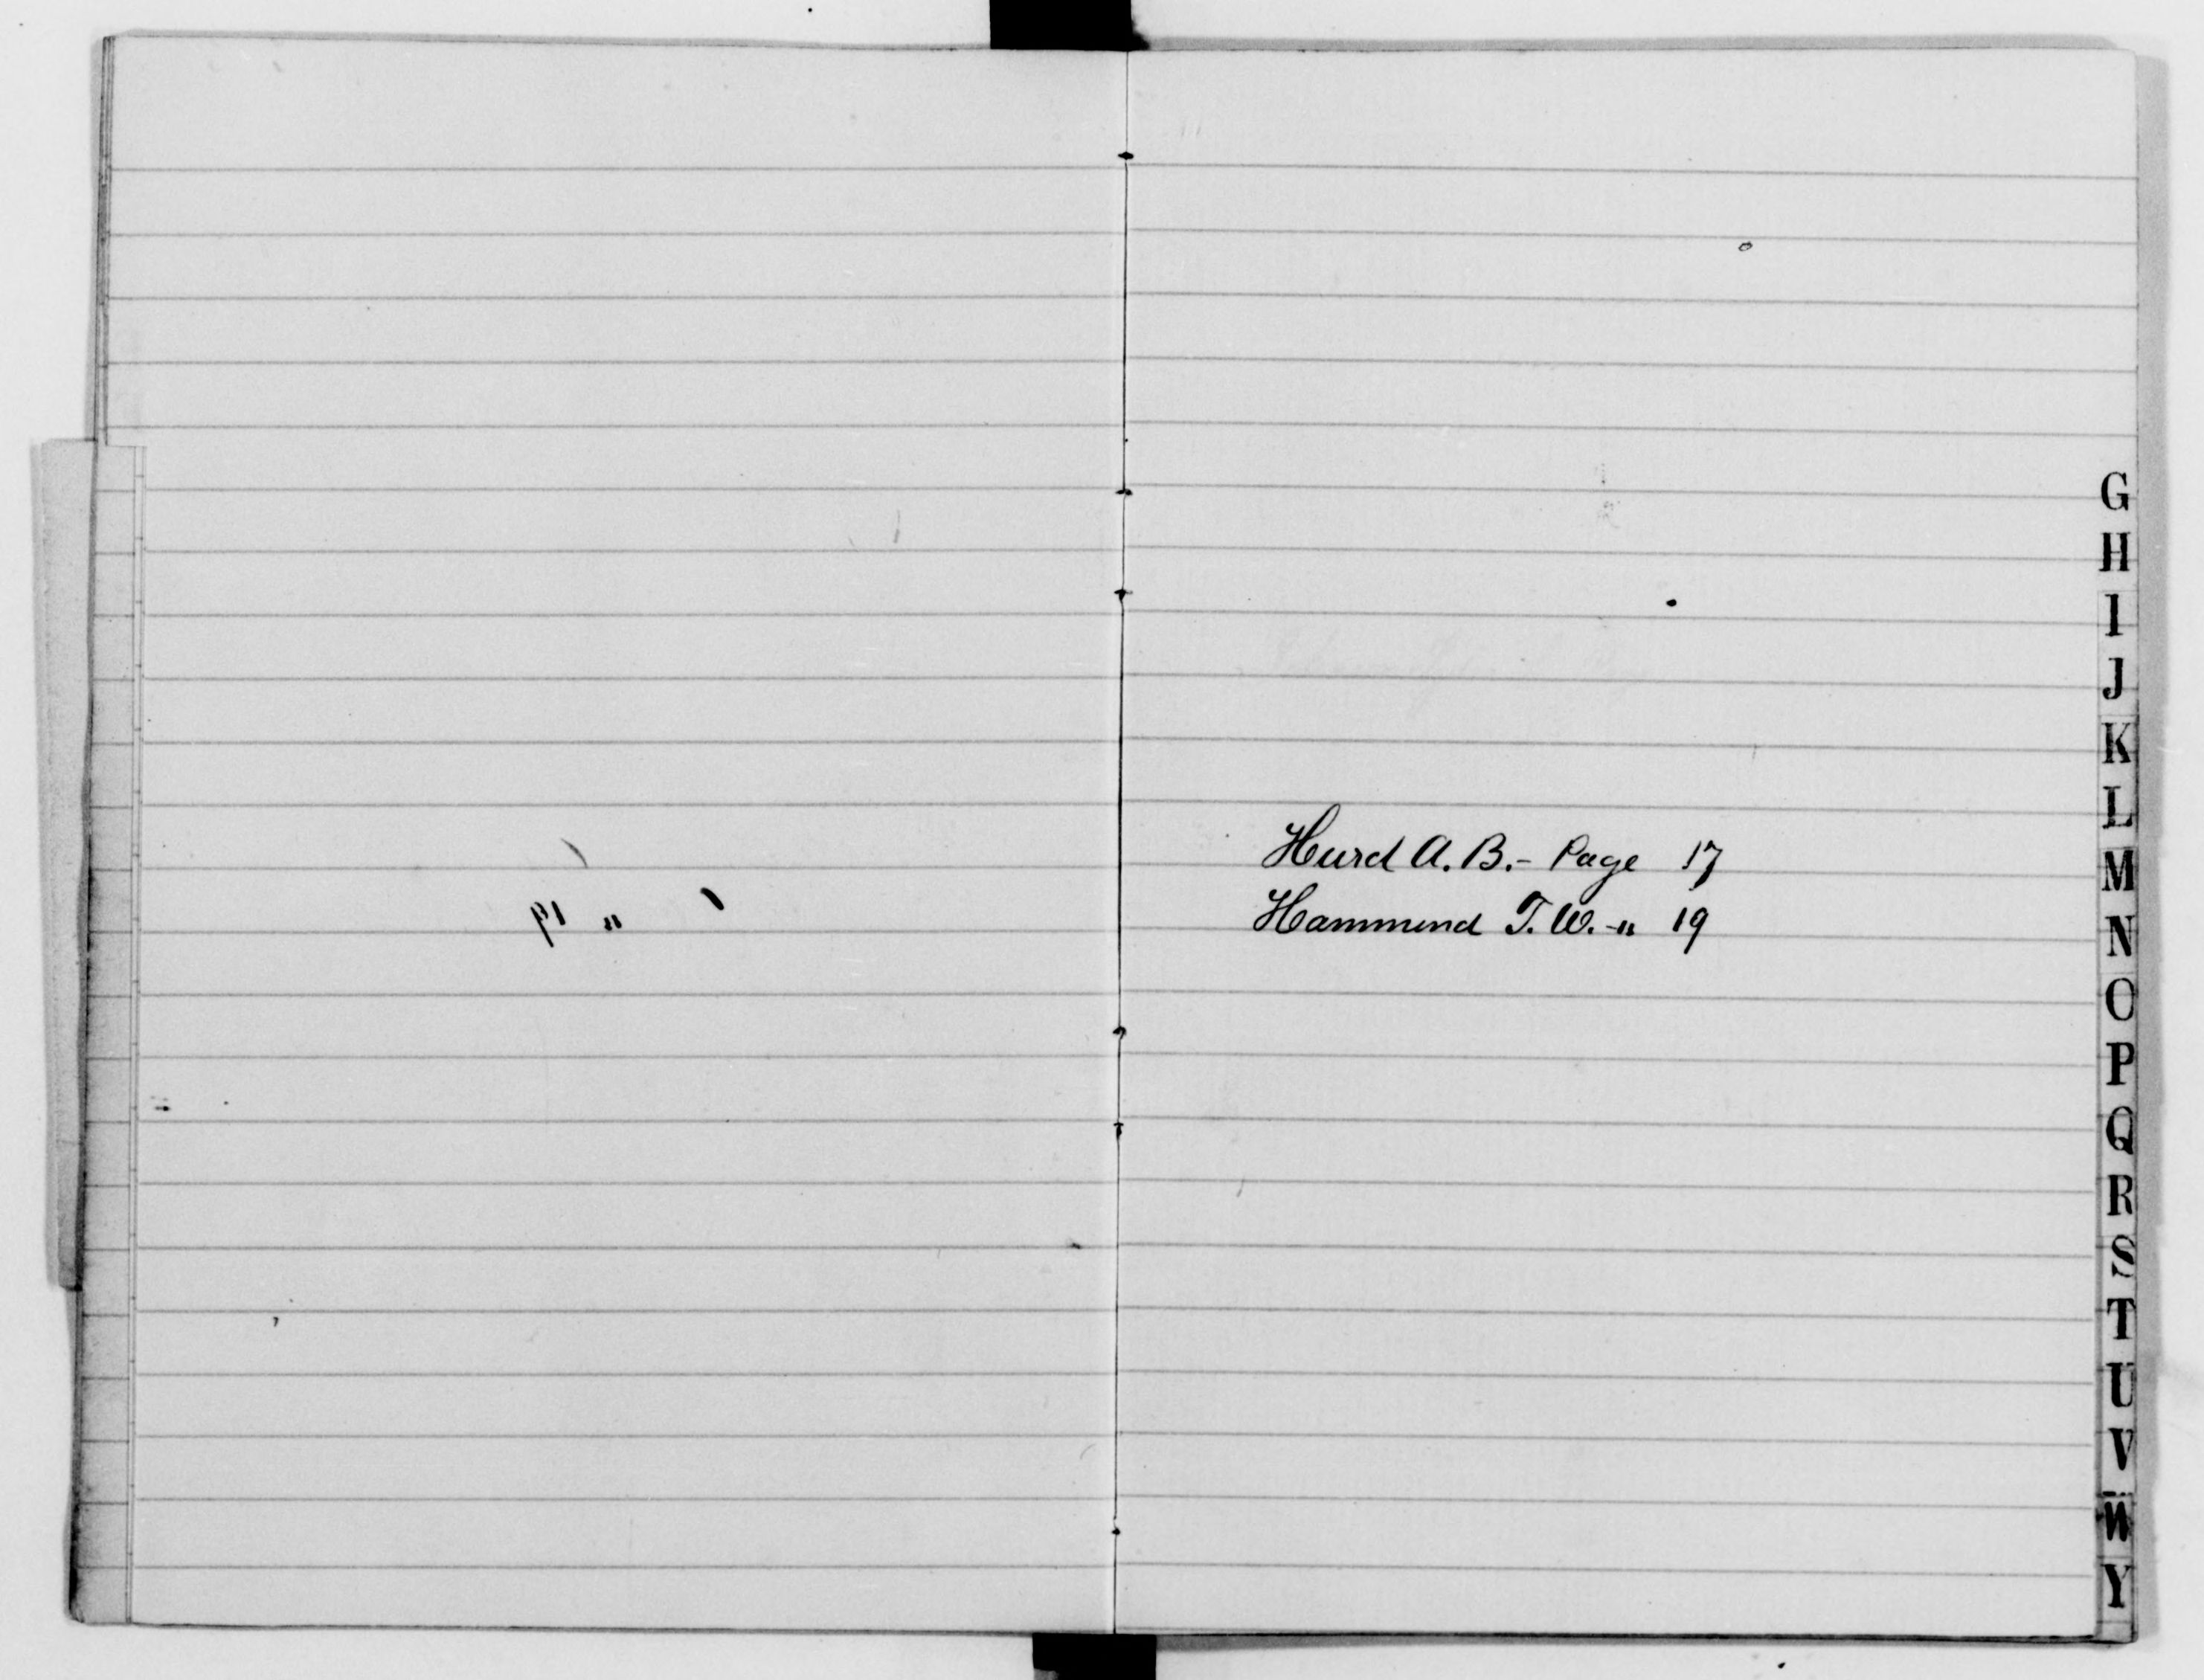 G
H
I
J
K
L
Hurd A. B. - Page 17
M
Hammond T. W. - " 19
N
O
P
Q
R
S
T
U
V
W
Y